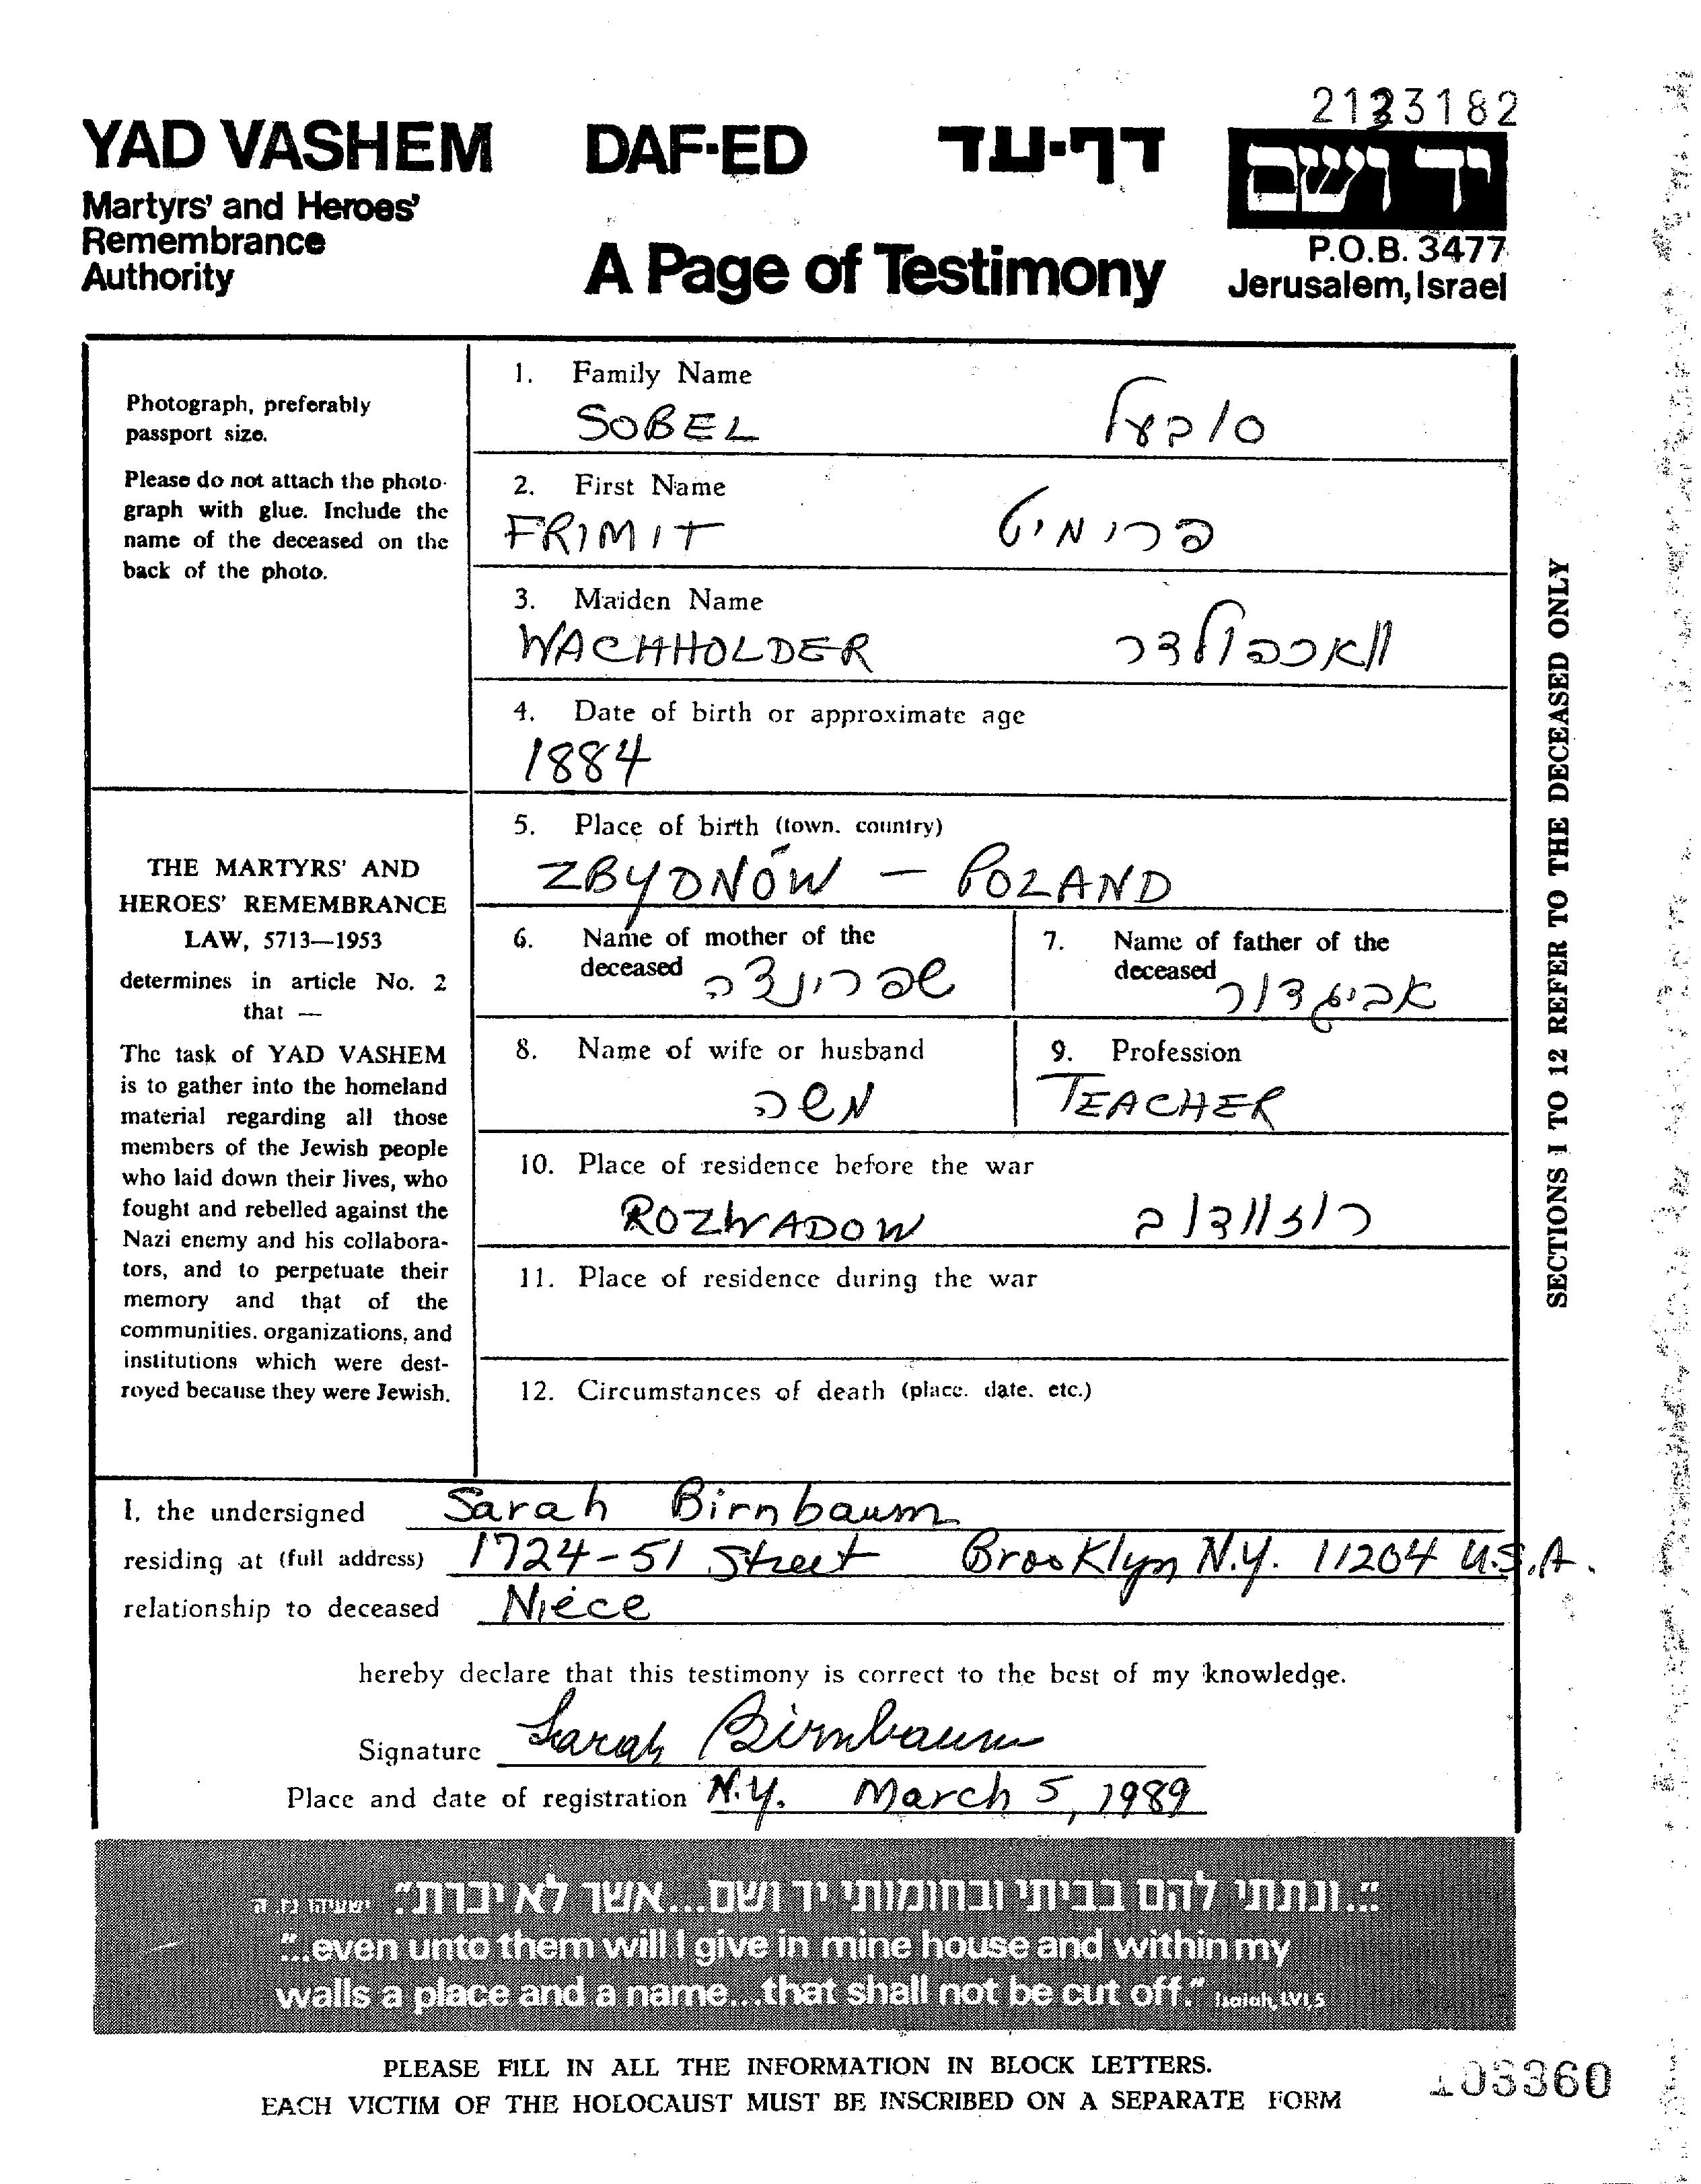 2133182
YAD VASHEM DAF-ED דף-עד
יד ושם
Martyrs' and Heroes'
Remembrance
Authority
A Page of Testimony
P.O.B. 3477
Jerusalem, Israel
Photograph, preferably
passport size.
Please do not attach the photo-
graph with glue. Include the
name of the deceased on the
back of the photo.
THE MARTYRS' AND
HEROES' REMEMBRANCE
LAW, 5713—1953
determines in article No. 2
that —
The task of YAD VASHEM
is to gather into the homeland
material regarding all those
members of the Jewish people
who laid down their lives, who
fought and rebelled against the
Nazi enemy and his collabora-
tors, and to perpetuate their
memory and that of the
communities, organizations, and
institutions which were dest-
royed because they were Jewish.
1. Family Name
SOBEL סובעל
2. First Name
FRIMIT פרימיט
3. Maiden Name
WACHHOLDER וואכהולדר
4. Date of birth or approximate age
1884
5. Place of birth (town, country)
ZBYDNÓW — POLAND
6. Name of mother of the
deceased שפרינצה
7. Name of father of the
deceased אביגדור
8. Name of wife or husband
משה
9. Profession
TEACHER
10. Place of residence before the war
ROZWADOW רוזוודוב
11. Place of residence during the war
12. Circumstances of death (place, date, etc.)
SECTIONS 1 TO 12 REFER TO THE DECEASED ONLY
I, the undersigned Sarah Birnbaum
residing at (full address) 1724-51 Street Brooklyn N.Y. 11204 U.S.A.
relationship to deceased Niece
hereby declare that this testimony is correct to the best of my knowledge.
Signature Sarah Birnbaum
Place and date of registration N.Y. March 5, 1989
"..ונתתי להם בביתי ובחומותי יד ושם...אשר לא יכרת." ישעיהו נו, ה
"..even unto them will I give in mine house and within my
walls a place and a name...that shall not be cut off." Isaiah, LVI,5
PLEASE FILL IN ALL THE INFORMATION IN BLOCK LETTERS.
EACH VICTIM OF THE HOLOCAUST MUST BE INSCRIBED ON A SEPARATE FORM
103360